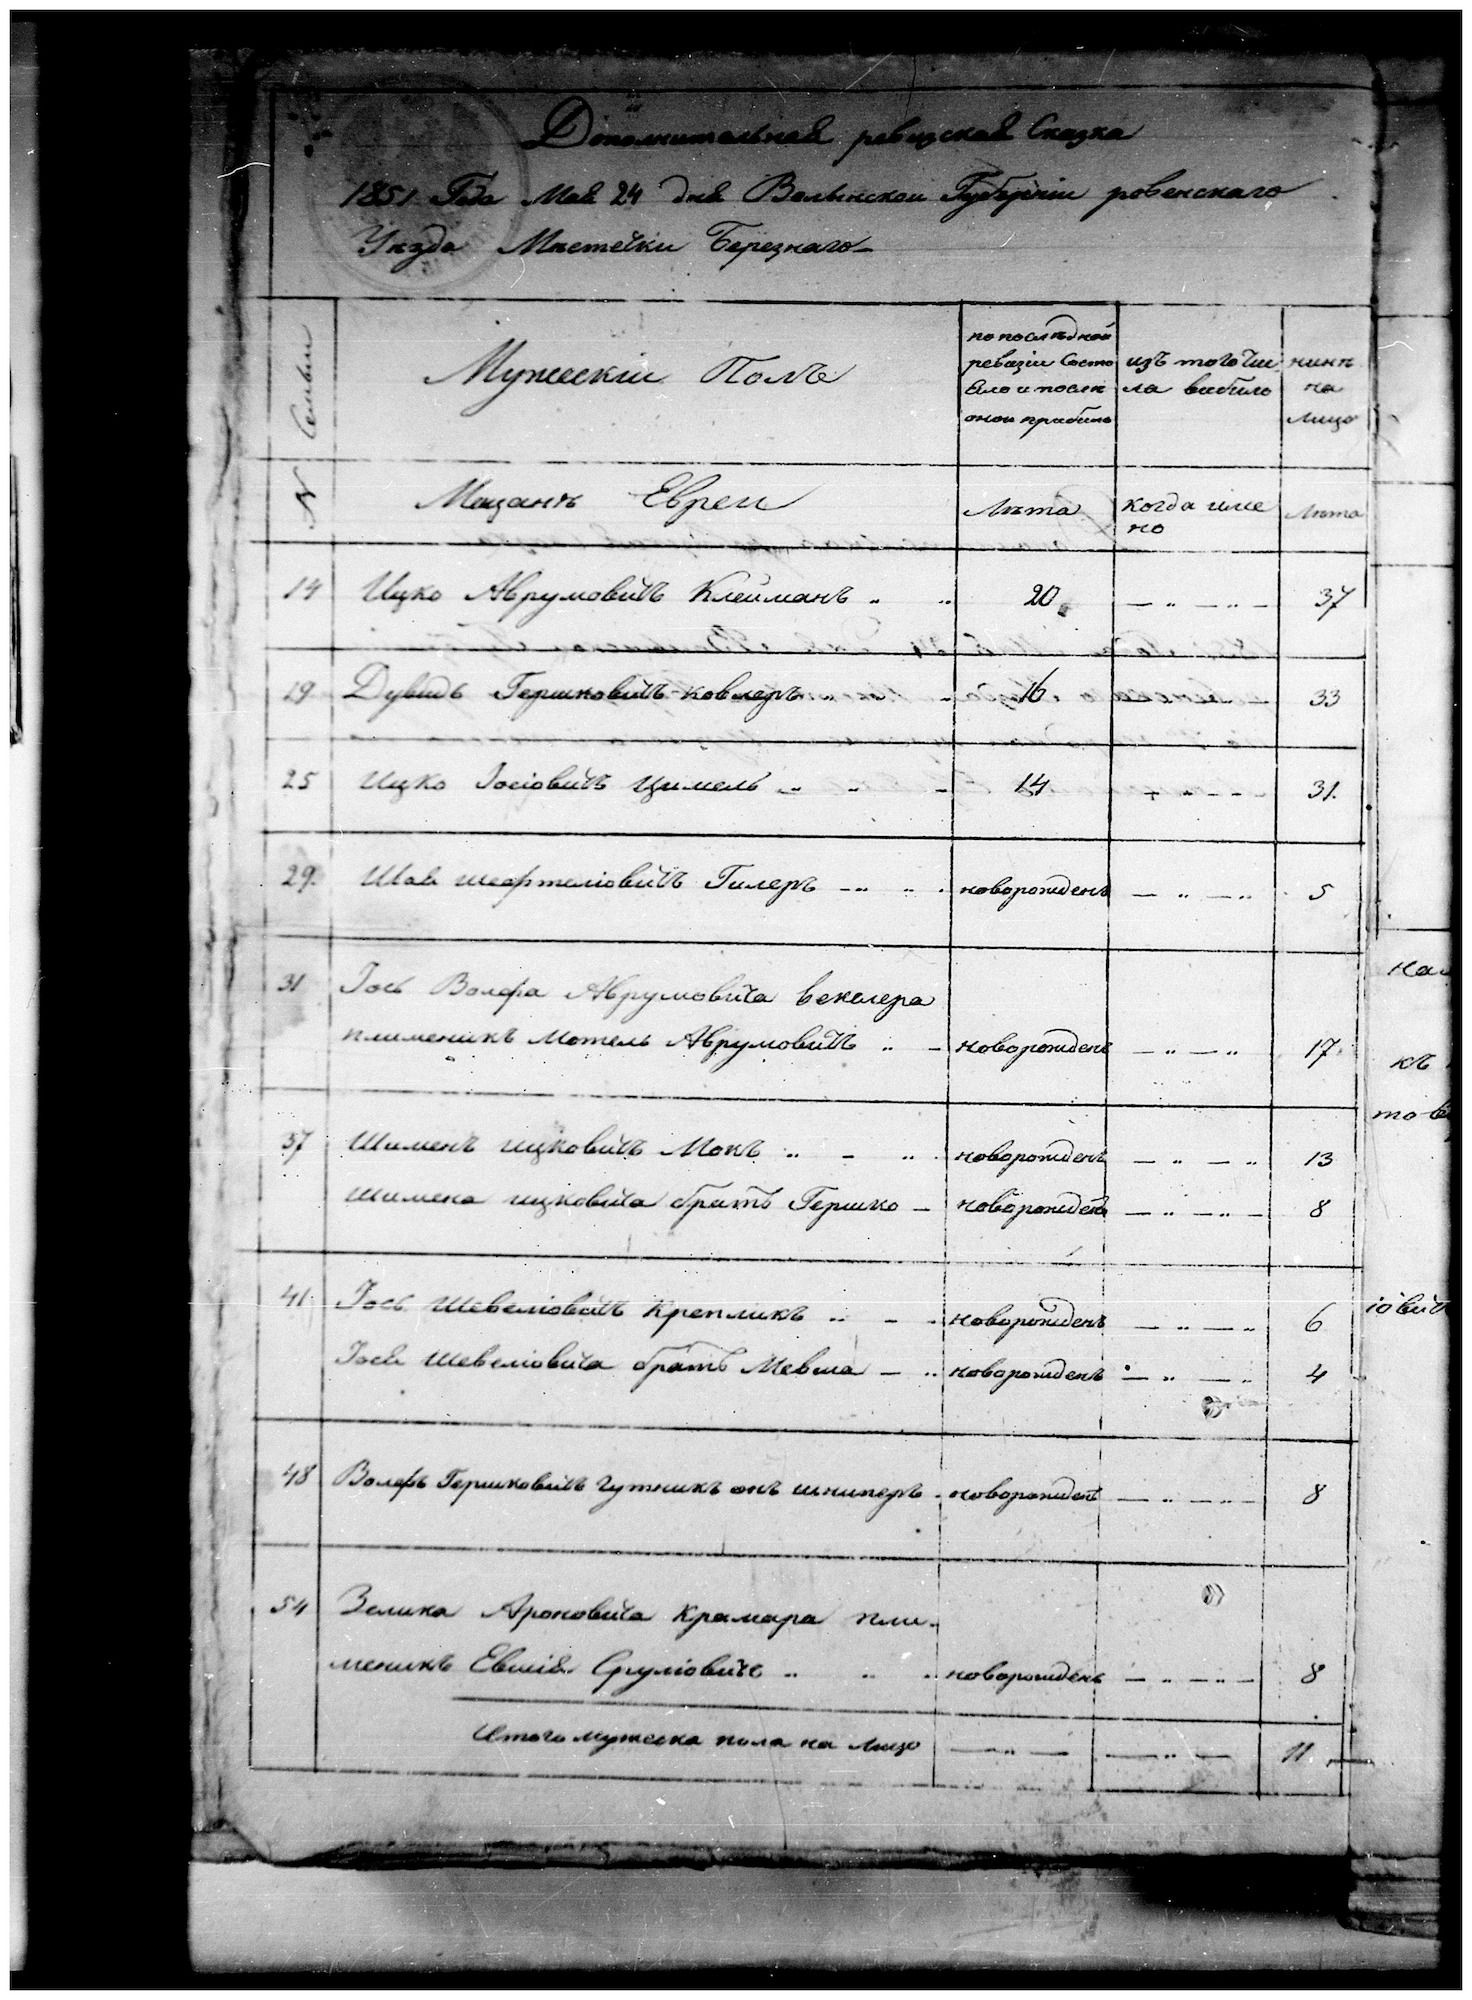 Дополнительная ревизская Сказка
1851 Года Мая 24 дня Волынской Губерніи ровенскаго
Уѣзда Мѣстечки Березнаго
N Семьи
Мужескіи Полъ
по послѣдной ревизіи Состо яло и послѣ оной прибыло
изъ того чи ла выбыло
нинѣ на лицо
Мещанѣ Евреи
Лѣта
когда име но
Лѣта
14 Ицко Аврумовичъ Клейманъ „ „ 20 — „ — „ — 37
19 Дувидъ Гершковичъ Ковлеръ „ 16 33
25 Ицко Іосіовичъ Цимель — „ — 14 — „ — — 31.
29. Шая шефтеліовичъ Гилеръ — „ „ новорожденъ — „ — „ 5
31 Іось Волфа Аврумовича Векслера
плименикъ Мотель Аврумовичъ „ — новорожденъ — „ — „ 17
37 Шименъ ицковичъ Мокъ „ — „ новорожденъ — „ — „ 13
Шимена ицковича братъ Гершко — новорожденъ — „ — „ — 8
41 Іось Шевеліовичъ Крепликъ „ — новорожденъ — „ — „ 6
Іося Шевеліовича братъ Мевша — „ новорожденъ — „ — „ 4
48 Волфъ Гершковичъ Гутникъ онъ шниперъ новорожденъ — „ — „ — 8
54 Зелика Ароновича Крамара пли-
меникъ Евшія Сруліовичъ „ „ „ новорожденъ — „ — „ — 8
Итого мужеска пола на лицо — „ — — „ — 11
на
къ
то
іовичъ